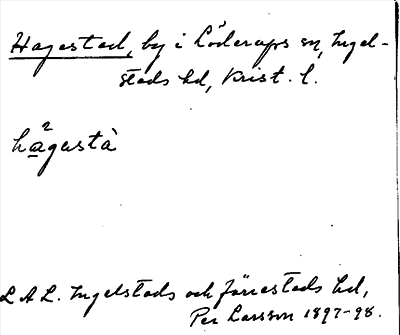 Hagestad, by i Löderups sn, Ingel-
stads hd, Krist. l.
hagastà
L A L. Ingelstads och Järrestads hd,
Per Larsson 1897-98.